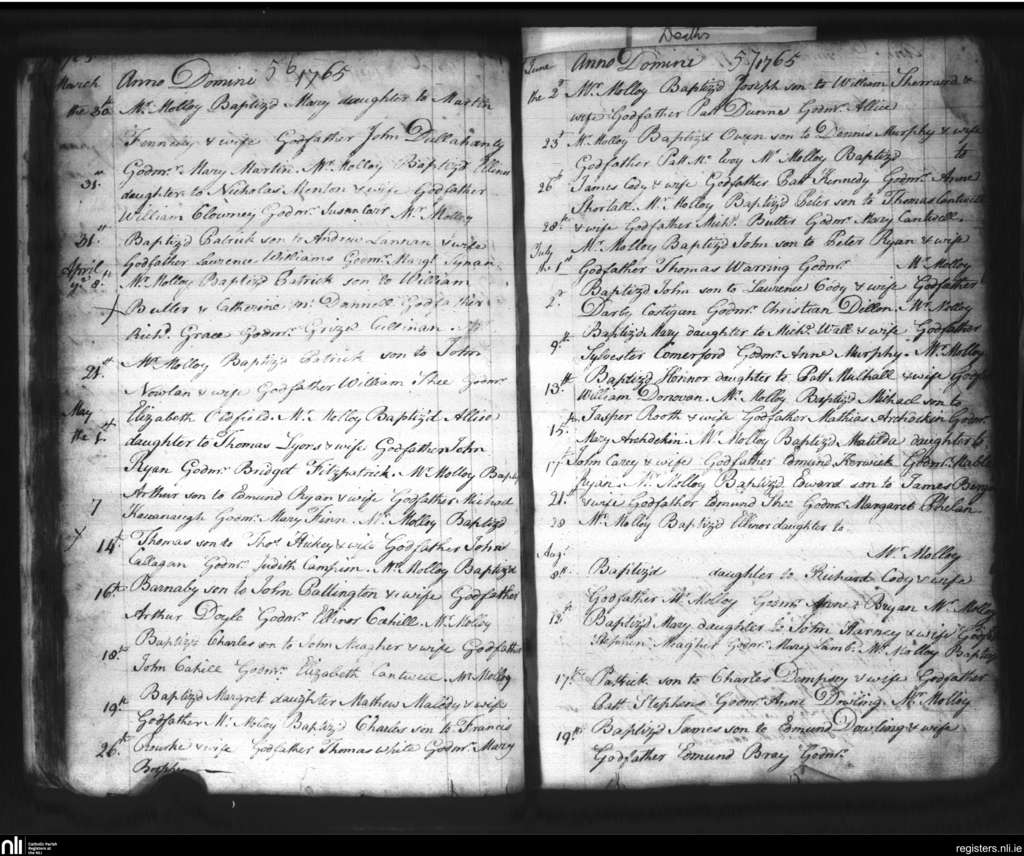 Deaths
March Anno Domini 56 1765
the 30 Mr. Molloy Baptiz'd Mary daughter to Martin
& wife Godfather John
Godmr. Mary Martin. Mr. Molloy Baptiz'd Ellinor
31st daughter to Nicholas & wife Godfather
William Clowney Godmr. Mr. Molloy
31st Baptiz'd Patrick son to Andrew Lannan & wife
April Godfather Laurence Williams Godmr. Margt. Synan
ye 8th Mr. Molloy Baptiz'd Patrick son to William
Butler & Catherine Godfather
Richd. Grace Godmr. Grize Cullinan
21st Mr. Molloy Baptiz'd Patrick son to John
Nowlan & wife Godfather William Shee Godmr.
May Elizabeth Oldfield. Mr. Molloy Baptiz'd Allice
the 1st daughter to Thomas Lyons & wife Godfather John
Ryan Godmr. Bridget Fitzpatrick. Mr. Molloy Baptiz
7 Arthur son to Edmund Ryan & wife Godfather Michael
Kavanaugh Godmr. Mary Finn. Mr. Molloy Baptiz'd
14th Thomas son to Thos. Hickey & wife Godfather John
Callagan Godmr. Judith Campion. Mr. Molloy Baptiz'd
16th Barnaby son to John Pallington & wife Godfather
Arthur Doyle Godmr. Ellinor Cahill Mr. Molloy
18th Baptiz'd Charles son to John Meagher & wife Godfather
John Cahill Godmr. Elizabeth Cantwell Mr. Molloy
19th Baptiz'd Margret daughter Mathew & wife
Godfather Mr. Molloy Baptiz'd Charles son to Francis
26th Rourke & wife Godfather Thomas White Godmr. Mary
June Anno Domini 57 1765
the 2d Mr. Molloy Baptiz'd Joseph son to William Sherrard &
wife Godfather Patt Dunne Godmr. Allice
23d Mr. Molloy Baptiz'd Owen son to Dennis Murphy & wife
Godfather Patt Mc. Evoy Mr. Molloy Baptiz'd to
26th James Cody & wife Godfather Patt Kennedy Godmr. Anne
Shortall. Mr. Molloy Baptiz'd Peter son to Thomas Cantwell
28th & wife Godfather Michl. Butler Godmr. Mary Cantwell
July Mr. Molloy Baptiz'd John son to Peter Ryan & wife
the 1st Godfather Thomas Warring Godmr. Mr. Molloy
Baptiz'd John son to Laurence Cody & wife Godfather
2d Darby Costigan Godmr. Christian Dillon. Mr. Molloy
Baptiz'd Mary daughter to Michl. Wall & wife Godfather
9th Sylvester Comerford Godmr. Anne Murphy. Mr. Molloy
Baptiz'd Honnor daughter to Patt Mulhall & wife
13th William Donovan. Mr. Molloy Baptiz'd Michael son to
Jasper Rooth & wife Godfather Mathias Archdekin Godmr.
15th Mary Archdekin. Mr. Molloy Baptiz'd Matilda daughter to
17th John Carey & wife Godfather Edmund Godmr.
Ryan Mr. Molloy Baptiz'd Edward son to James
21st & wife Godfather Edmund Shee Godmr. Margaret Phelan
28 Mr. Molloy Baptiz'd Ellinor daughter to
Augt. Mr. Molloy
8th Baptiz'd daughter to Richard Cody & wife
Godfather Mr. Molloy Godmr. Anne Bryan Mr. Molloy
12th Baptiz'd Mary daughter to John Harney & wife
Stephen Meagher Godmr. Mary Lamb. Mr. Molloy Baptiz'd
17th Patrick son to Charles Dempsey & wife Godfather
Patt Stephens Godmr. Anne Dowling Mr. Molloy
19th Baptiz'd James son to Edmund Dowling & wife
Godfather Edmund Bray Godmr.
nli Catholic Parish Registers at the NLI
registers.nli.ie